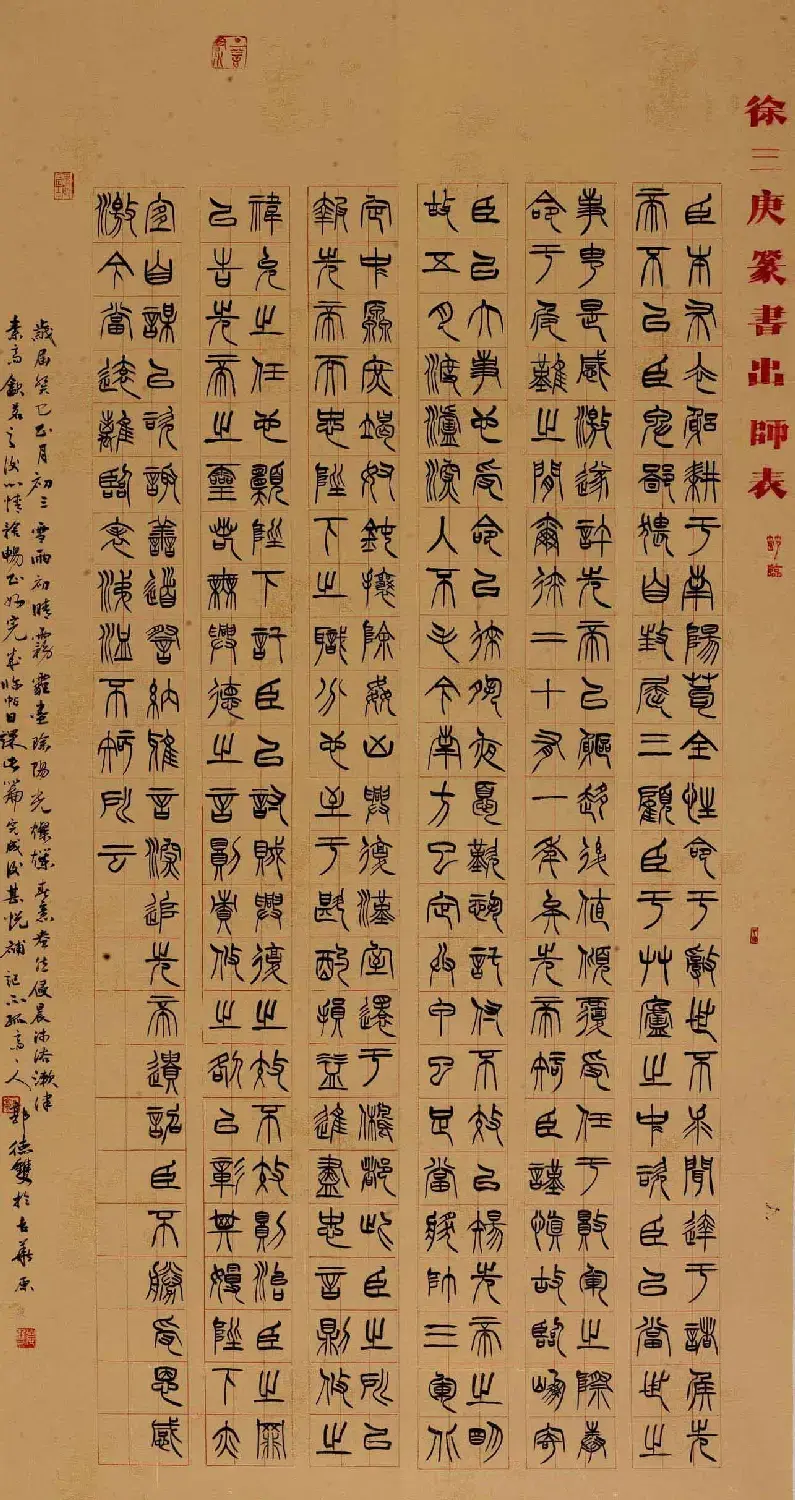 徐三庚篆書出師表
節臨
臣本布衣躬耕于南陽苟全性命于亂世不求聞達于諸侯先
帝不㠯臣卑鄙猥自枉屈三顧臣于艸廬之中諮臣㠯當世之
事由是感激遂許先帝㠯驅馳後值傾覆受任于敗軍之際奉
命于危難之間爾徠二十有一年矣先帝知臣謹慎故臨崩寄
臣㠯大事也受命㠯徠夙夜憂歎恐託付不效㠯傷先帝之明
故五月渡瀘深入不毛今南方已定兵甲已足當獎帥三軍北
定中原庶竭奴鈍攘除姦凶興復漢室還于舊都此臣之所㠯
報先帝而忠陛下之職分也至于斟酌損益進盡忠言則攸之
褘允之任也願陛下託臣㠯討賊興復之效不效則治臣之罪
㠯告先帝之靈若無興德之言則責攸之欲㠯彰其慢陛下亦
宜自謀㠯諮諏善道察納雅言深追先帝遺詔臣不勝受恩感
激今當遠離臨表涕泣不知所云
歲屆癸巳正月初三雪雨初晴霧霾盡除陽光爍爍春意侵晨沐浴漱津
素高飲茗之後心情舒暢正好完成臨帖日課此篇完成後甚悅補記不孤高人鄭德雙於古華原